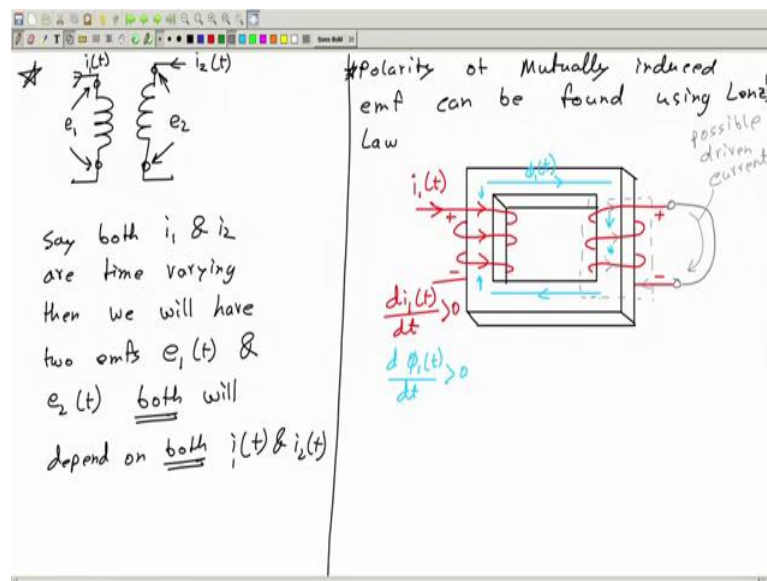 i(t)
i₂(t)
e₁
e₂
Say both i₁ & i₂
are time varying
then we will have
two emfs e₁(t) &
e₂(t) both will
depend on both i₁(t) & i₂(t)
Polarity of Mutually induced
emf can be found using Lenz's
Law
possible
driven
current
ϕ₁(t)
i₁(t)
+
+
-
-
di₁(t)/dt >0
d ϕ₁(t)/dt >0